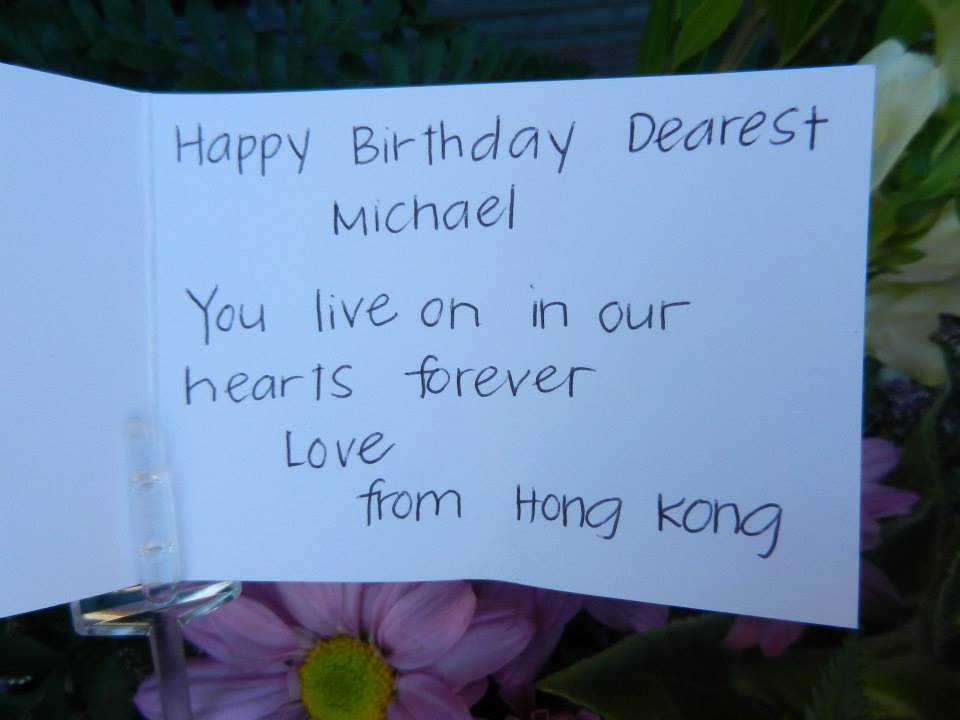 Happy Birthday Dearest
Michael
You live on in our
hearts forever
Love
from Hong Kong